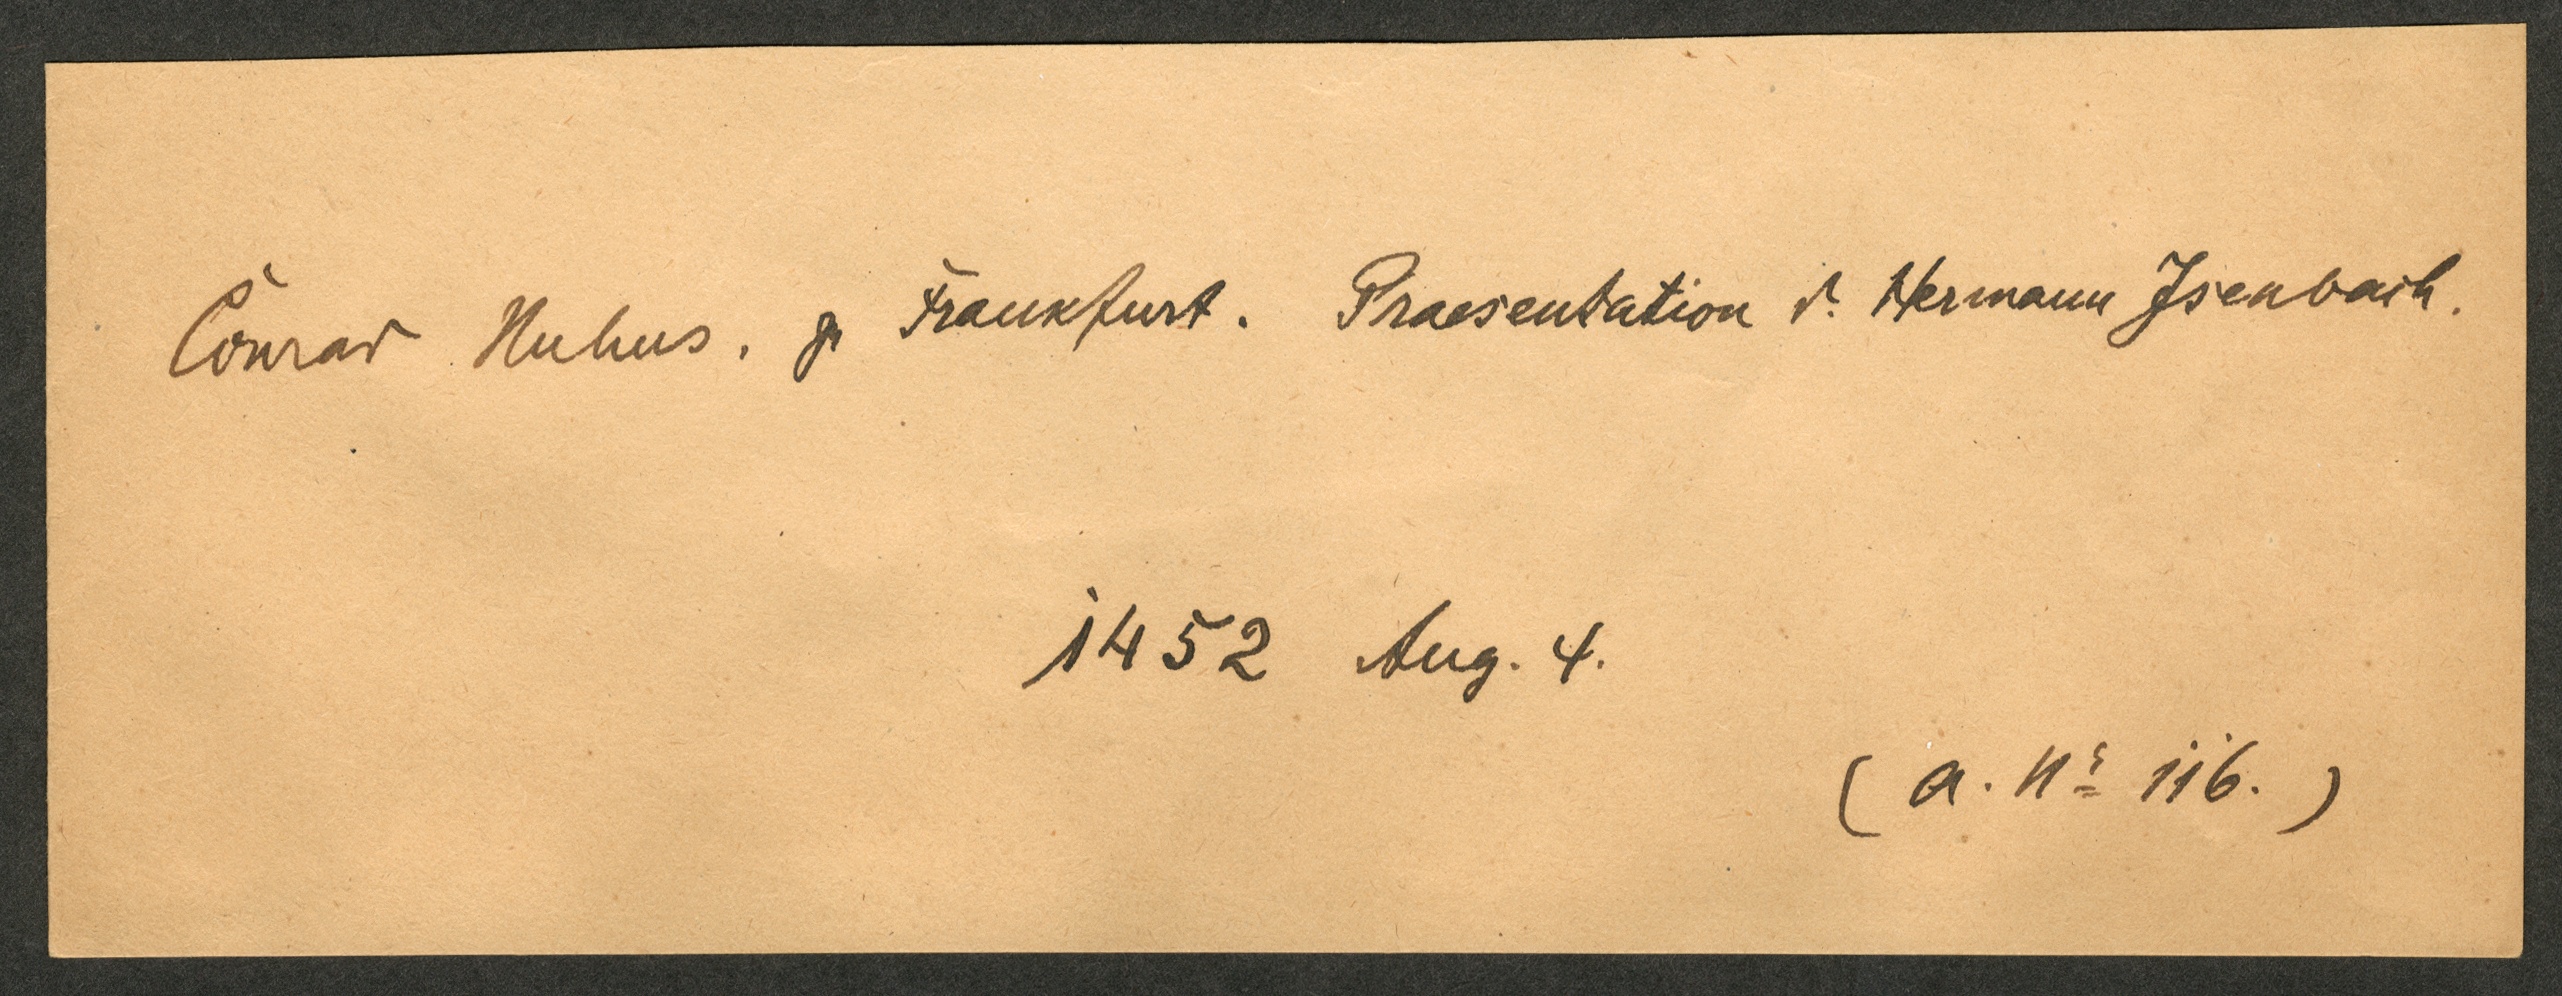 Conrad Nuhus. zu Frankfurt. Praesentation d. Hermann Jsenbach.
1452 Aug. 4.
(a. Nr 116.)